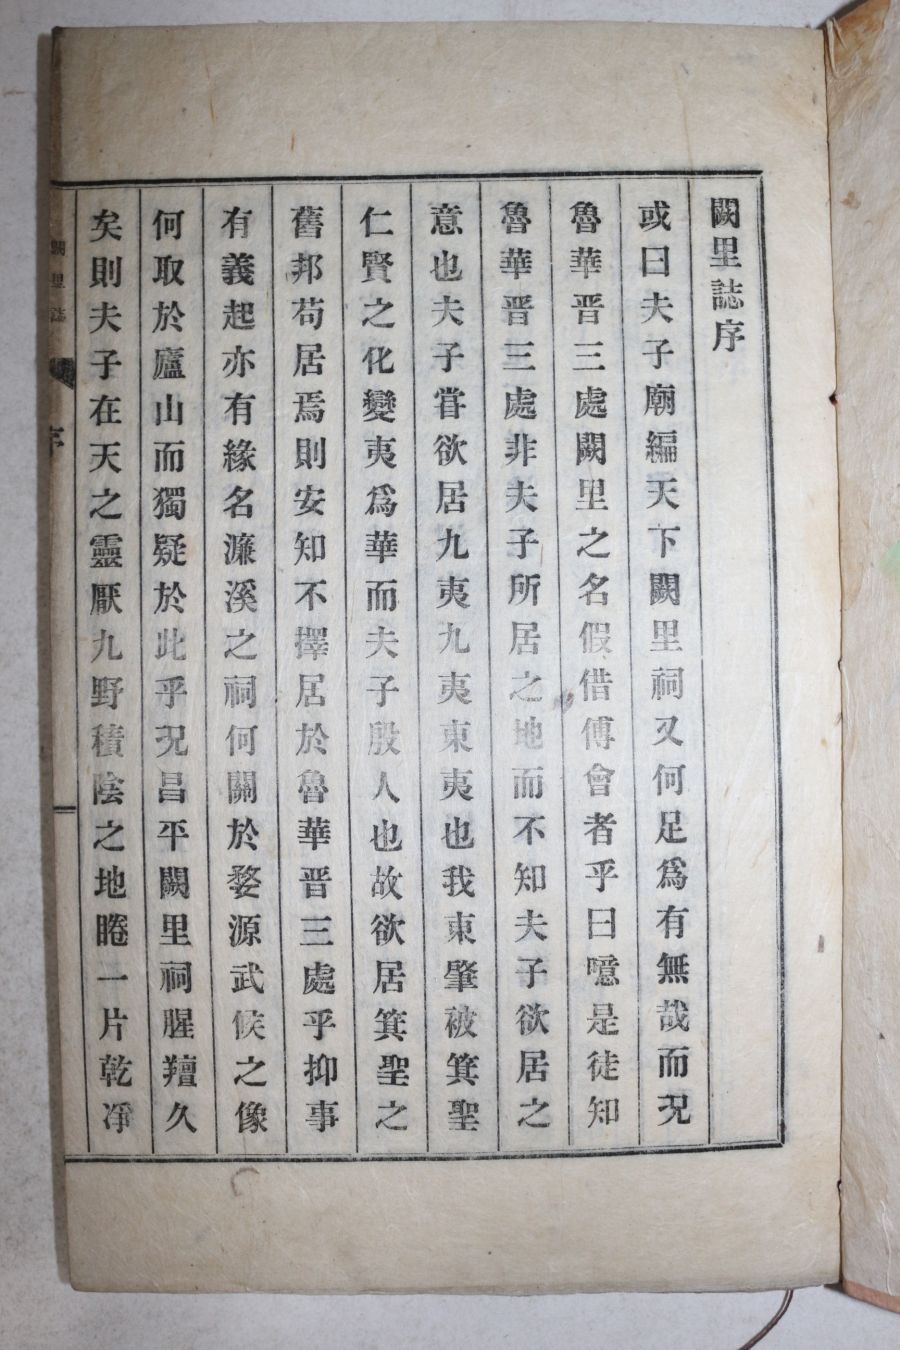 闕里誌序
或曰夫子廟編天下闕里祠又何足爲有無哉而況
魯華晋三處闕里之名假借傅會者乎曰噫是徒知
魯華晋三處非夫子所居之地而不知夫子欲居之
意也夫子甞欲居九夷九夷東夷也我東肇被箕聖
仁賢之化變夷爲華而夫子殷人也故欲居箕聖之
舊邦苟居焉則安知不擇居於魯華晋三處乎抑事
有義起亦有緣名濂溪之祠何關於婺源武侯之像
何取於廬山而獨疑於此乎況昌平闕里祠腥羶久
矣則夫子在天之靈厭九野積陰之地睠一片乾凈
闕里誌
序